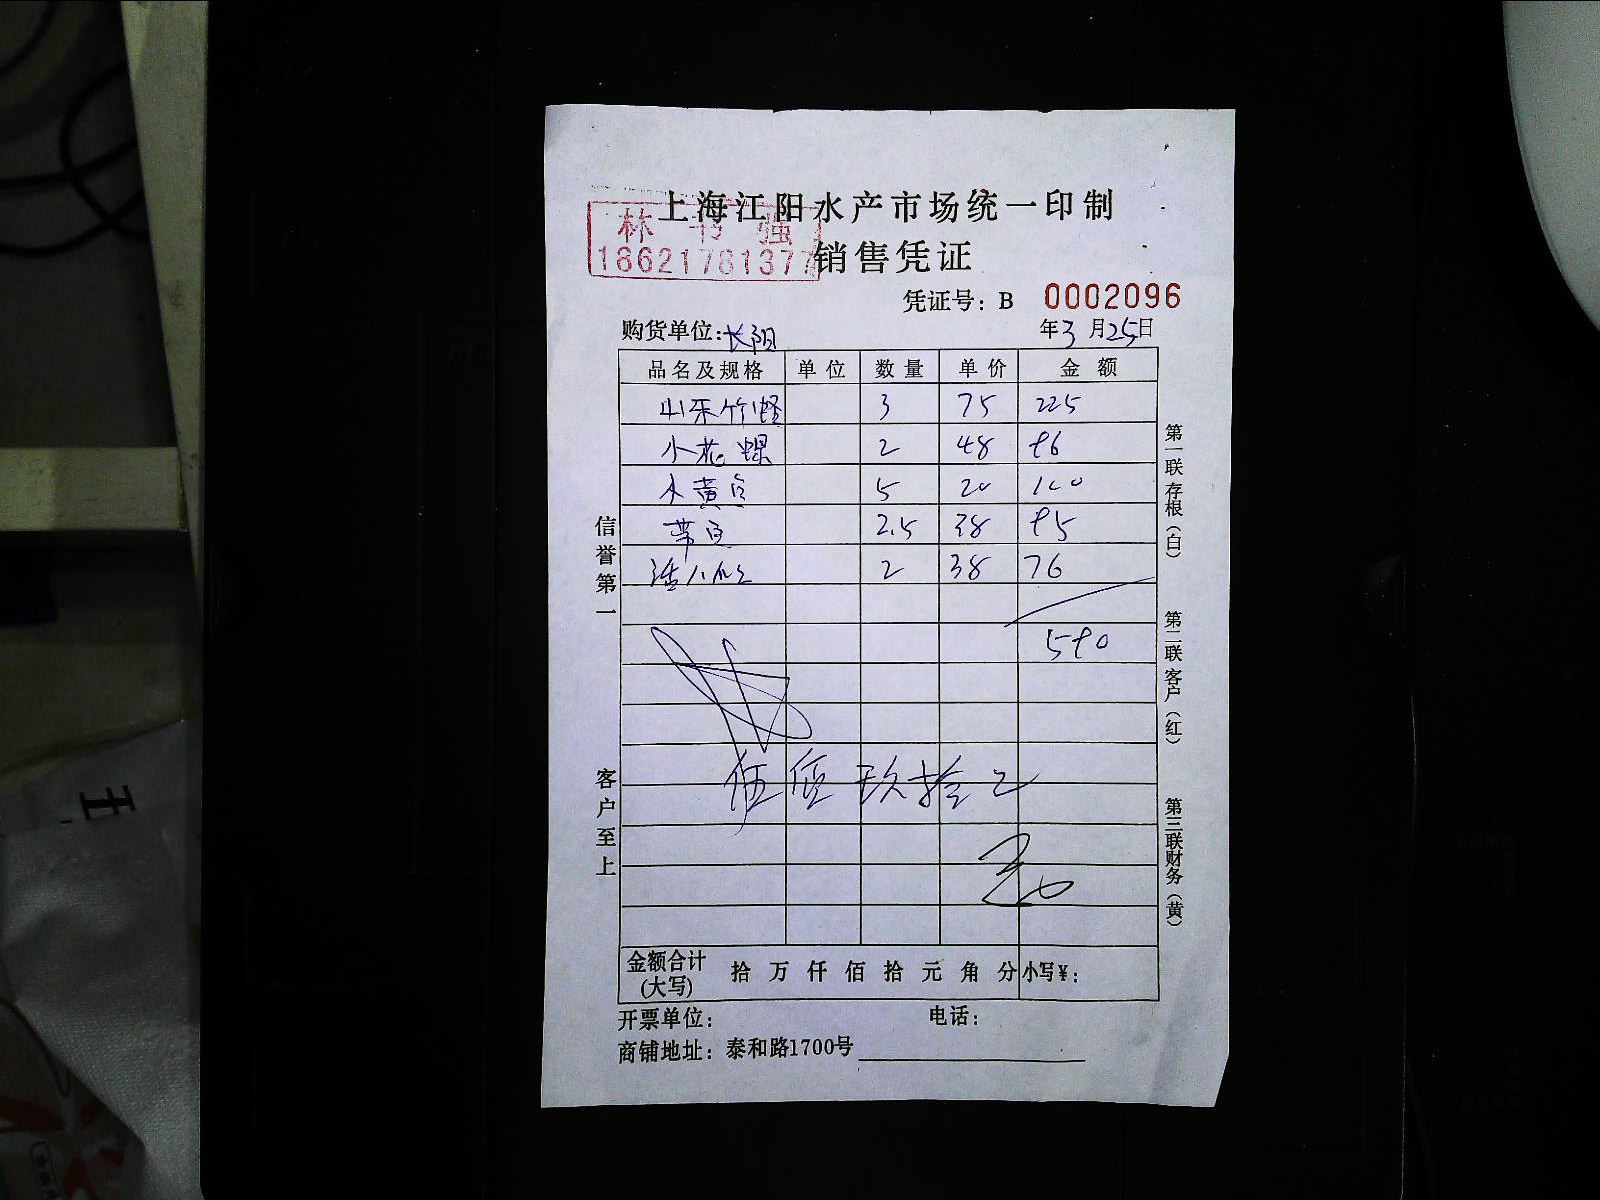 上海江阳水产市场统一印制
林 书 强
18621781377
销售凭证
凭证号：B 0002096
购货单位：长阳 年3月25日
品名及规格 单位 数量 单价 金额
山东竹蛏 3 75 225
小花螺 2 48 96
小黄鱼 5 20 100
带鱼 2.5 38 95
活八爪 2 38 76
590
伍佰玖拾元
金额合计(大写) 拾 万 仟 佰 拾 元 角 分 小写￥：
开票单位： 电话：
商铺地址：泰和路1700号
信誉第一
客户至上
第一联存根（白）
第二联客户（红）
第三联财务（黄）